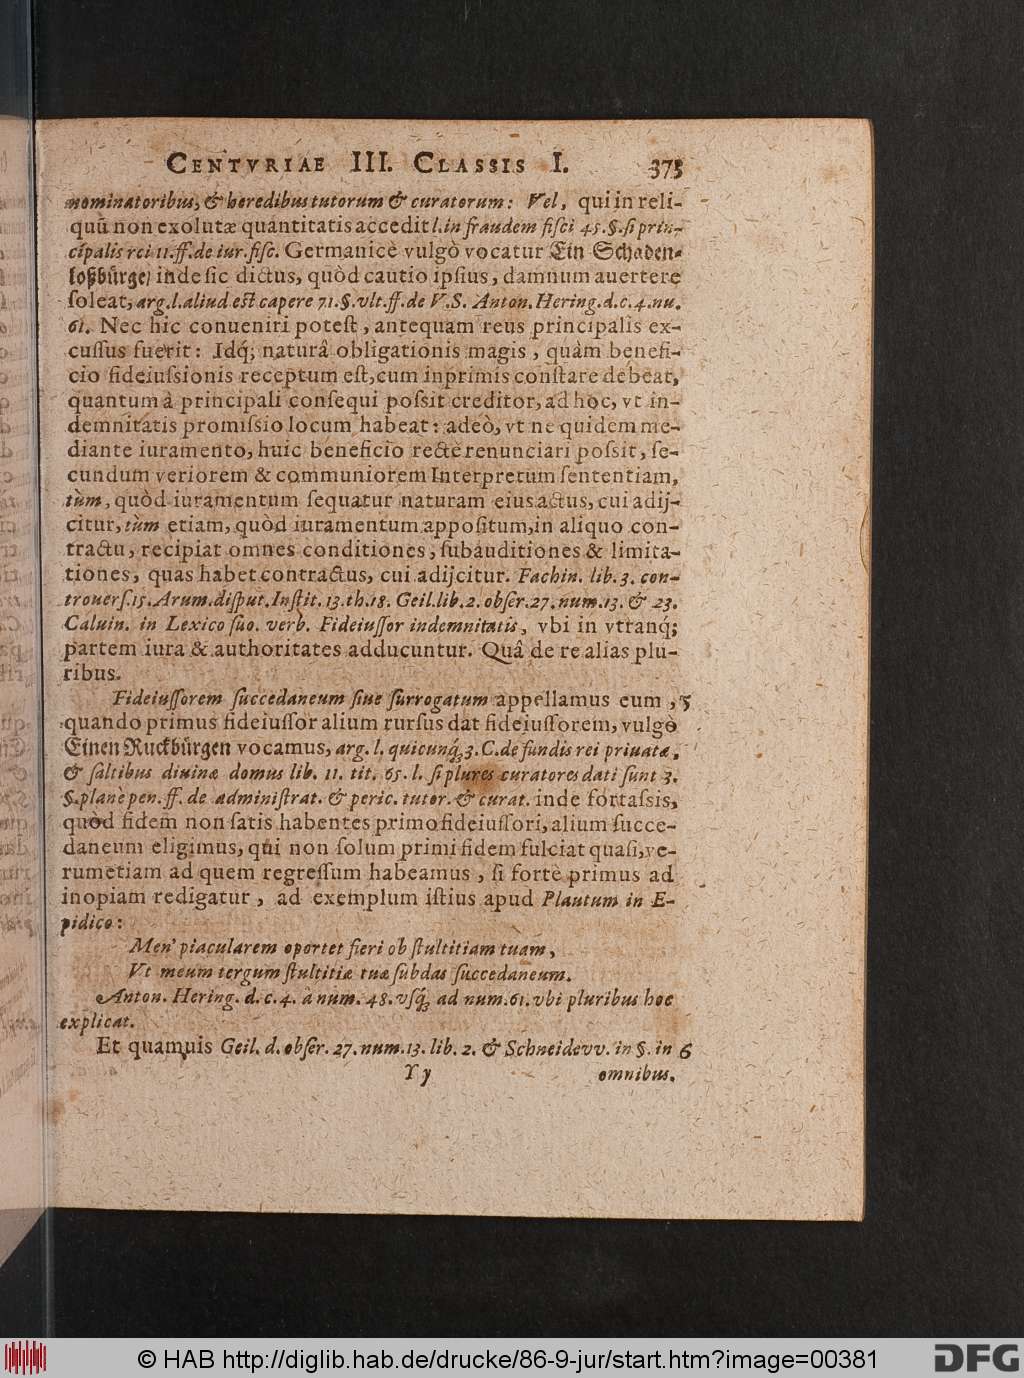 CENTVRIAE III. CLASSIS I. 373
nominatoribus, & heredibus tutorum & curatorum: Vel, qui in reli-
quũ non exolutæ quantitatis accedit l. in fraudem fisci 45. §. si prin-
cipalis rei 11. ff. de iur. fisc. Germanicè vulgò vocatur Ein Schaden-
loßbürge/ inde sic dictus, quòd cautio ipsius, damnum auertere
soleat, arg. l. aliud est capere 71. §. vlt. ff. de V. S. Anton. Hering. d. c. 4. nu.
61. Nec hic conueniri potest, antequam reus principalis ex-
cussus fuerit: Idq́; naturâ obligationis magis, quàm benefi-
cio fideiussionis receptum est, cum inprimis constare debeat,
quantum à principali consequi possit creditor, ad hoc, vt in-
demnitatis promissio locum habeat: adeò, vt ne quidem me-
diante iuramento, huic beneficio rectè renunciari possit, se-
cundum veriorem & communiorem Interpretum sententiam,
tùm, quòd iuramentum sequatur naturam eius actus, cui adij-
citur, tùm etiam, quòd iuramentum appositum, in aliquo con-
tractu, recipiat omnes conditiones, subauditiones & limita-
tiones, quas habet contractus, cui adijcitur. Fachin. lib. 3. con-
trouers. 15. Arum. disput. Instit. 13. th. 18. Geil. lib. 2. obser. 27. num. 13. & 23.
Caluin. in Lexico suo. verb. Fideiussor indemnitatis, vbi in vtranq́;
partem iura & authoritates adducuntur. Quâ de re alias plu-
ribus.
Fideiussorem succedaneum siue surrogatum appellamus eum, 5
quando primus fideiussor alium rursus dat fideiussorem, vulgò
Einen Ruckbürgen vocamus, arg. l. quicunq́; 3. C. de fundis rei priuatæ,
& saltibus diuinæ domus lib. 11. tit. 65. l. si plures curatores dati sunt 3.
§. planè pen. ff. de administrat. & peric. tutor. & curat. inde fortassis,
quòd fidem non satis habentes primo fideiussori, alium succe-
daneum eligimus, qui non solum primi fidem fulciat quasi, ve-
rumetiam ad quem regressum habeamus, si fortè primus ad
inopiam redigatur, ad exemplum istius apud Plautum in E-
pidico:
Men' piacularem oportet fieri ob stultitiam tuam,
Vt meum tergum stultitiæ tuæ subdas succedaneum.
Anton. Hering. d. c. 4. à num. 48. vsq́; ad num. 61. vbi pluribus hoc
explicat.
Et quamuis Geil. d. obser. 27. num. 13. lib. 2. & Schneidevv. in §. in 6
Yy omnibus.
© HAB http://diglib.hab.de/drucke/86-9-jur/start.htm?image=00381 DFG